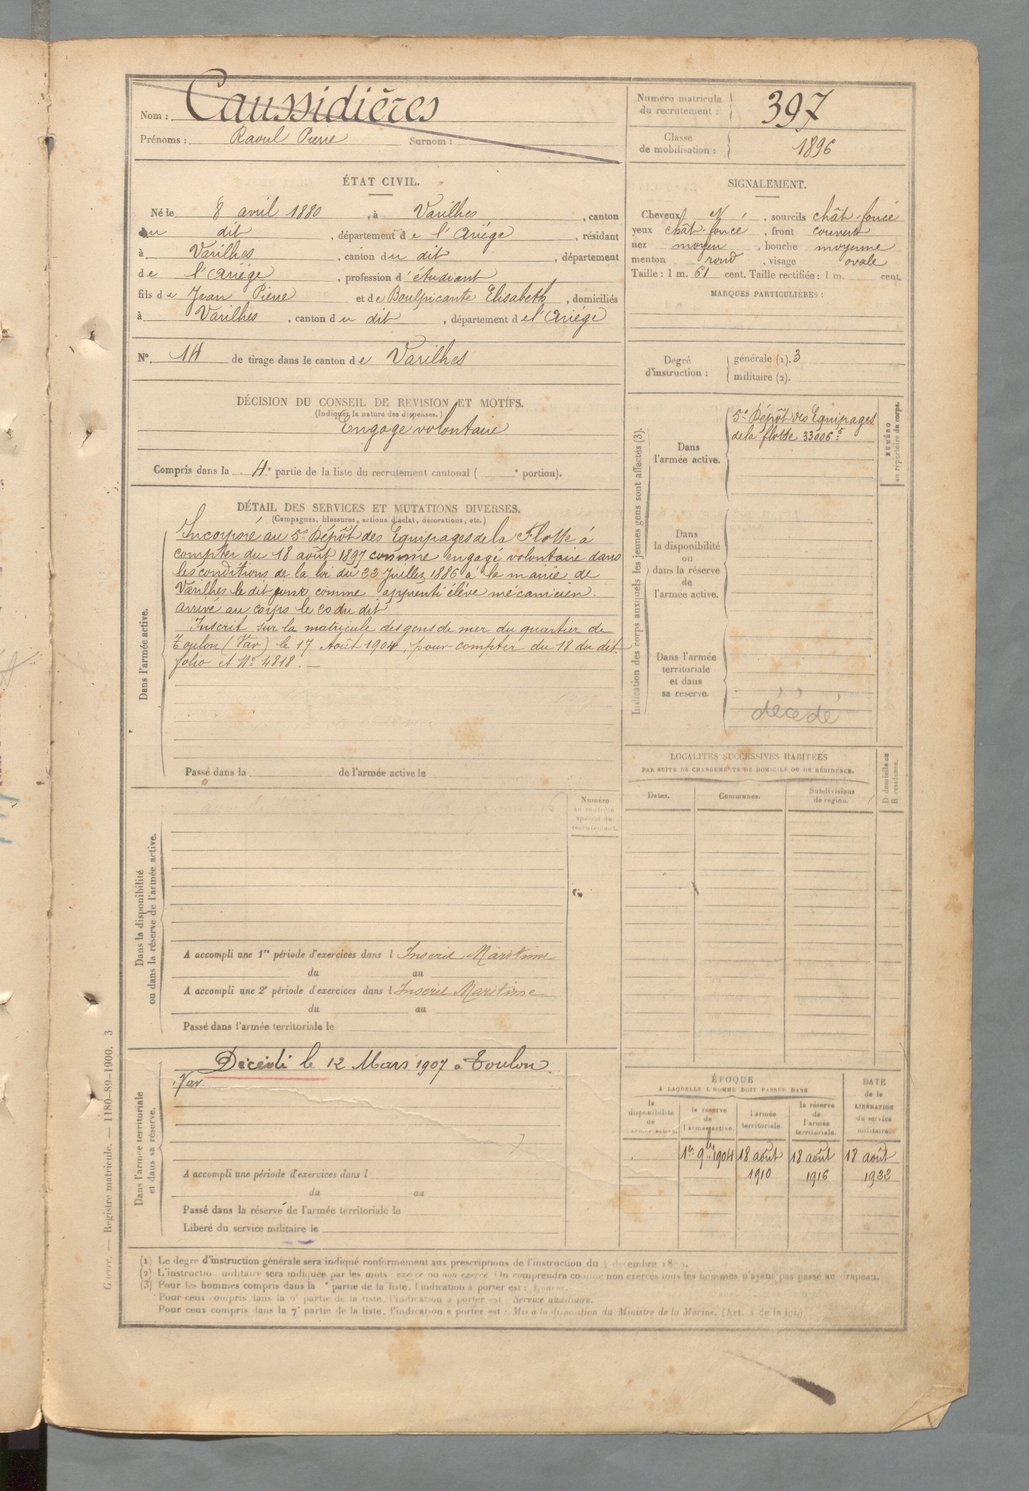 Nom : Caussidières
Prénoms : Raoul Pierre Surnom :
Numéro matricule
du recrutement : 397
Classe
de mobilisation : 1896
ÉTAT CIVIL.
Né le 8 avril 1880, à Varilhes, canton
du dit, département de l'Ariége, résidant
à Varilhes, canton du dit, département
de l'Ariége, profession d'étudiant
fils de Jean Pierre et de Boulpicante Elisabeth, domiciliés
à Varilhes, canton du dit, département de l'Ariége
N° 14 de tirage dans le canton de Varilhes
DÉCISION DU CONSEIL DE REVISION ET MOTIFS.
(Indiquer la nature des dispenses.)
Engagé volontaire
Compris dans la 4e partie de la liste du recrutement cantonal ( e portion).
SIGNALEMENT.
Cheveux N, sourcils chât-foncé
yeux chât-foncé, front couvert
nez moyen, bouche moyenne
menton rond, visage ovale
Taille : 1 m. 61 cent. Taille rectifiée : 1 m. cent.
MARQUES PARTICULIÈRES :
Degré
d'instruction :
générale (1). 3
militaire (2).
DÉTAIL DES SERVICES ET MUTATIONS DIVERSES.
(Campagnes, blessures, actions d'éclat, décorations, etc.)
Dans l'armée active.
Incorporé au 5e Dépôt des Equipages de la Flotte à
compter du 18 août 1897 comme engagé volontaire dans
les conditions de la loi du 22 Juillet 1886 à la mairie de
Varilhes le dit jour comme apprenti élève mécanicien.
Arrivé au corps le 20 du dit
Inscrit sur la matricule des gens de mer du quartier de
Toulon (Var) le 17 Août 1904, pour compter du 18 du dit
folio et N° 4818.
Passé dans la de l'armée active le
Indication des corps auxquels les jeunes gens sont affectés (3).
Dans
l'armée active.
5e Dépôt des Equipages
de la flotte 33006 5
NUMÉRO
au répertoire du corps.
Dans
la disponibilité
ou
dans la réserve
de
l'armée active.
Dans l'armée
territoriale
et dans
sa reserve.
décédé
LOCALITÉS SUCCESSIVES HABITÉES
PAR SUITE DE CHANGEMENTS DE DOMICILE OU DE RÉSIDENCE.
Dates.
Communes.
Subdivisions
de région.
D domicile ou
R résidence.
Dans la disponibilité
ou dans la réserve de l'armée active.
Numéro
au contrôle
spécial du
recrutement.
A accompli une 1re période d'exercices dans l Inscrit Maritime
du au
A accompli une 2e période d'exercices dans l Inscrit Maritime
du au
Passé dans l'armée territoriale le
Dans l'armée territoriale
et dans sa réserve.
Décédé le 12 Mars 1907 à Toulon.
Var
A accompli une période d'exercices dans l
du au
Passé dans la réserve de l'armée territoriale le
Libéré du service militaire le
ÉPOQUE
À LAQUELLE L'HOMME DOIT PASSER DANS
la
disponibilité
de
l'armée active.
la réserve
de
l'armée active.
l'armée
territoriale.
la réserve
de
l'armée
territoriale.
DATE
de la
LIBÉRATION
du service
militaire.
1er 9bre 1904
18 août
1910
18 août
1916
18 août
1922
Guerre. — Registre matricule. — 1180-89-1900. 3
(1) Le degré d'instruction générale sera indiqué conformément aux prescriptions de l'instruction du décembre
(2) L'instruction militaire sera indiquée par les mots : exercé ou non exercé. On comprendra comme non exercés tous les hommes n'ayant pas passé au drapeau.
(3) Pour les hommes compris dans la e partie de la liste, l'indication à porter est :
Pour ceux compris dans la e partie de la liste, l'indication à porter est : Service auxiliaire.
Pour ceux compris dans la 7e partie de la liste, l'indication à porter est : Mis à la disposition du Ministre de la Marine. (Art. 4 de la loi.)